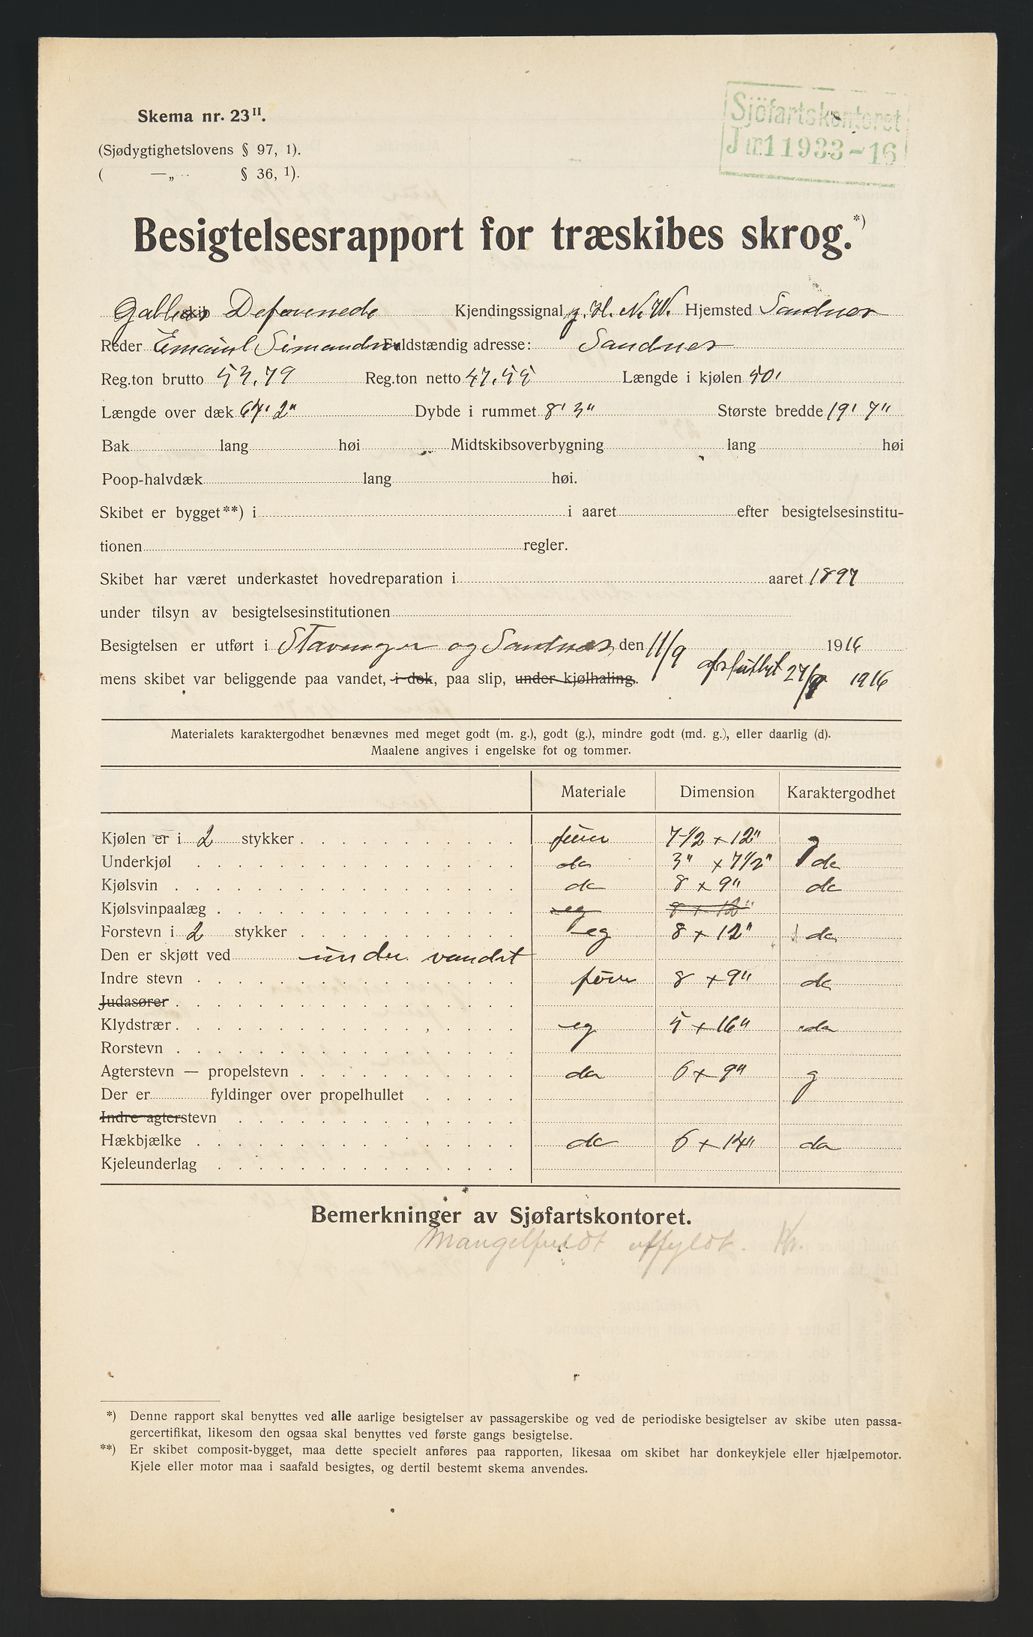 Skema nr. 23 II.
(Sjødygtighetslovens § 97, 1).
( —„— § 36, 1).
Sjöfartskontoret
J nr 11933-16
Besigtelsesrapport for træskibes skrog.*)
Deforenede Kjendingssignal H. N. W. Hjemsted Sandnes
Reder Simandn Fuldstændig adresse: Sandnes
Reg.ton brutto 53,79 Reg.ton netto 47,55 Længde i kjølen 50'
Længde over dæk 67' 2" Dybde i rummet 8' 3" Største bredde 19' 7"
Bak lang høi Midtskibsoverbygning lang høi
Poop-halvdæk lang høi.
Skibet er bygget**) i i aaret efter besigtelsesinstitu-
tionen regler.
Skibet har været underkastet hovedreparation i aaret 1897
under tilsyn av besigtelsesinstitutionen
Besigtelsen er utført i Stavanger og Sandnes, den 11/9 1916
mens skibet var beliggende paa vandet, i dok, paa slip, under kjølhaling. afsluttet 27/9 1916
Materialets karaktergodhet benævnes med meget godt (m. g.), godt (g.), mindre godt (md. g.), eller daarlig (d).
Maalene angives i engelske fot og tommer.
Materiale Dimension Karaktergodhet
Kjølen er i 2 stykker furu 7 1/2 x 12" g
Underkjøl do 3" x 7 1/2" do
Kjølsvin do 8 x 9" do
Kjølsvinpaalæg eg 8 x 12"
Forstevn i 2 stykker eg 8 x 12" do
Den er skjøtt ved under vandet
Indre stevn furu 8 x 9" do
Judasører
Klydstrær eg 5 x 16" do
Rorstevn
Agterstevn — propelstevn do 6 x 9" g
Der er fyldinger over propelhullet
Indre agterstevn
Hækbjælke do 6 x 14" do
Kjeleunderlag
Bemerkninger av Sjøfartskontoret.
Mangelfuldt utfyldt.
*) Denne rapport skal benyttes ved alle aarlige besigtelser av passagerskibe og ved de periodiske besigtelser av skibe uten passa-
gercertifikat, likesom den ogsaa skal benyttes ved første gangs besigtelse.
**) Er skibet composit-bygget, maa dette specielt anføres paa rapporten, likesaa om skibet har donkeykjele eller hjælpemotor.
Kjele eller motor maa i saafald besigtes, og dertil bestemt skema anvendes.